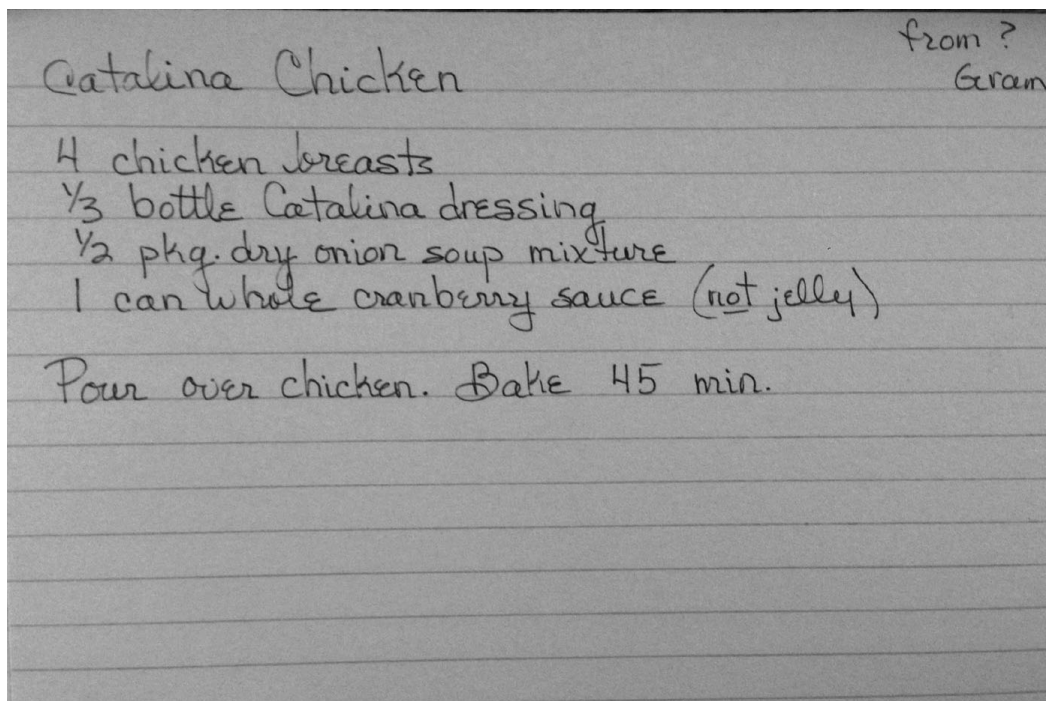 from ?
Gram
Catalina Chicken
4 chicken breasts
1/3 bottle Catalina dressing
1/2 pkg. dry onion soup mixture
1 can whole cranberry sauce (not jelly)
Pour over chicken. Bake 45 min.